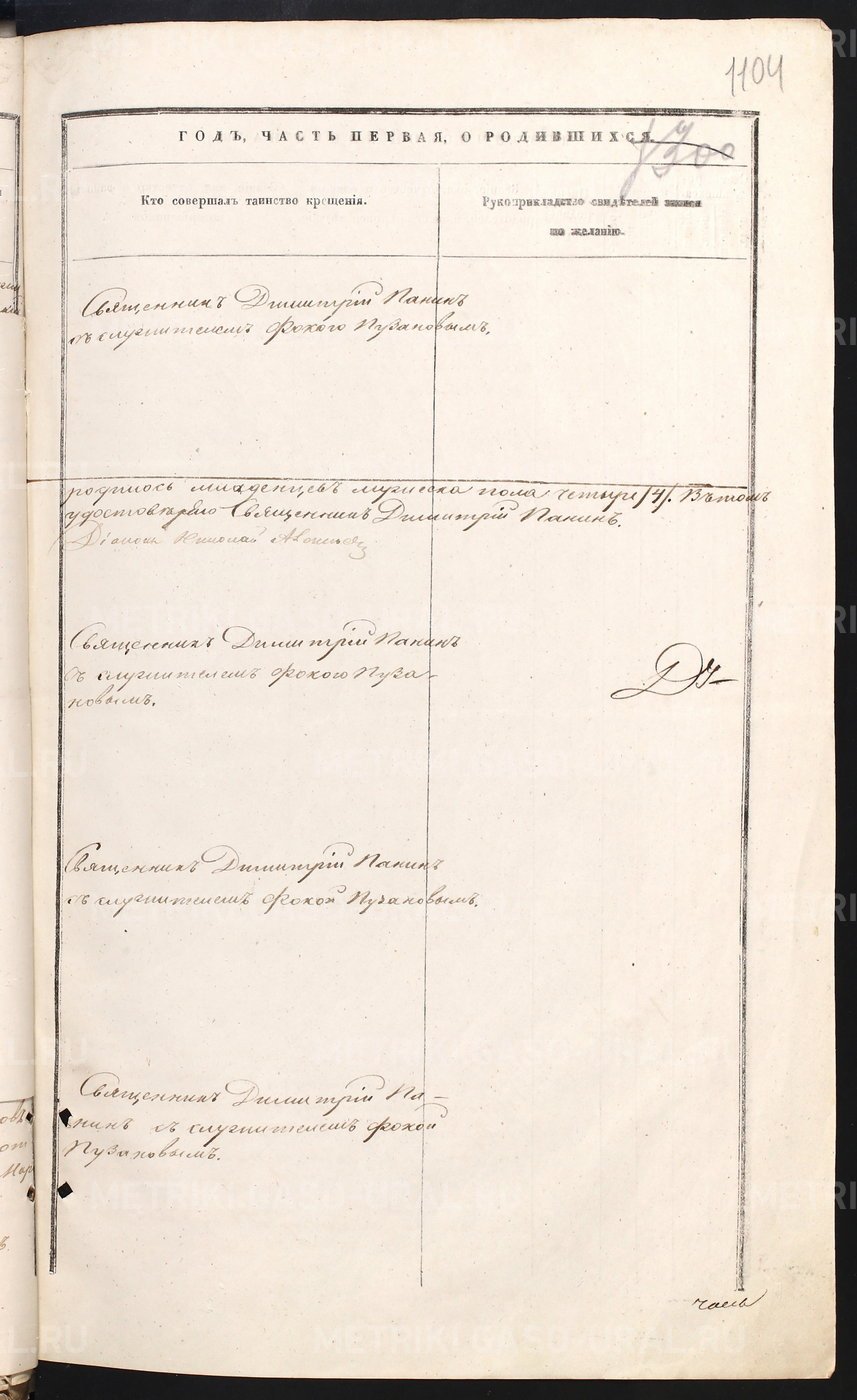 1104
ГОДЪ, ЧАСТЬ ПЕРВАЯ, О РОДИВШИХСЯ.
300
Кто совершалъ таинство крещенія.
Рукоприкладство свидѣтелей записи
по желанію.
Священникъ Димитрій Панинъ
съ служителемъ Фокою Пузановымъ.
родилось младенцевъ мужеска пола четыре /4/. Въ томъ
удостовѣряю Священникъ Димитрій Панинъ.
Діаконъ Николай
Священникъ Димитрій Панинъ
съ служителемъ Фокою Пуза-
новымъ.
Священникъ Димитрій Панинъ
съ служителемъ Фокой Пузановымъ.
Священникъ Димитрій Па-
нинъ съ служителемъ Фокой
Пузановымъ.
часть
METRIKI.GASO-URAL.RU